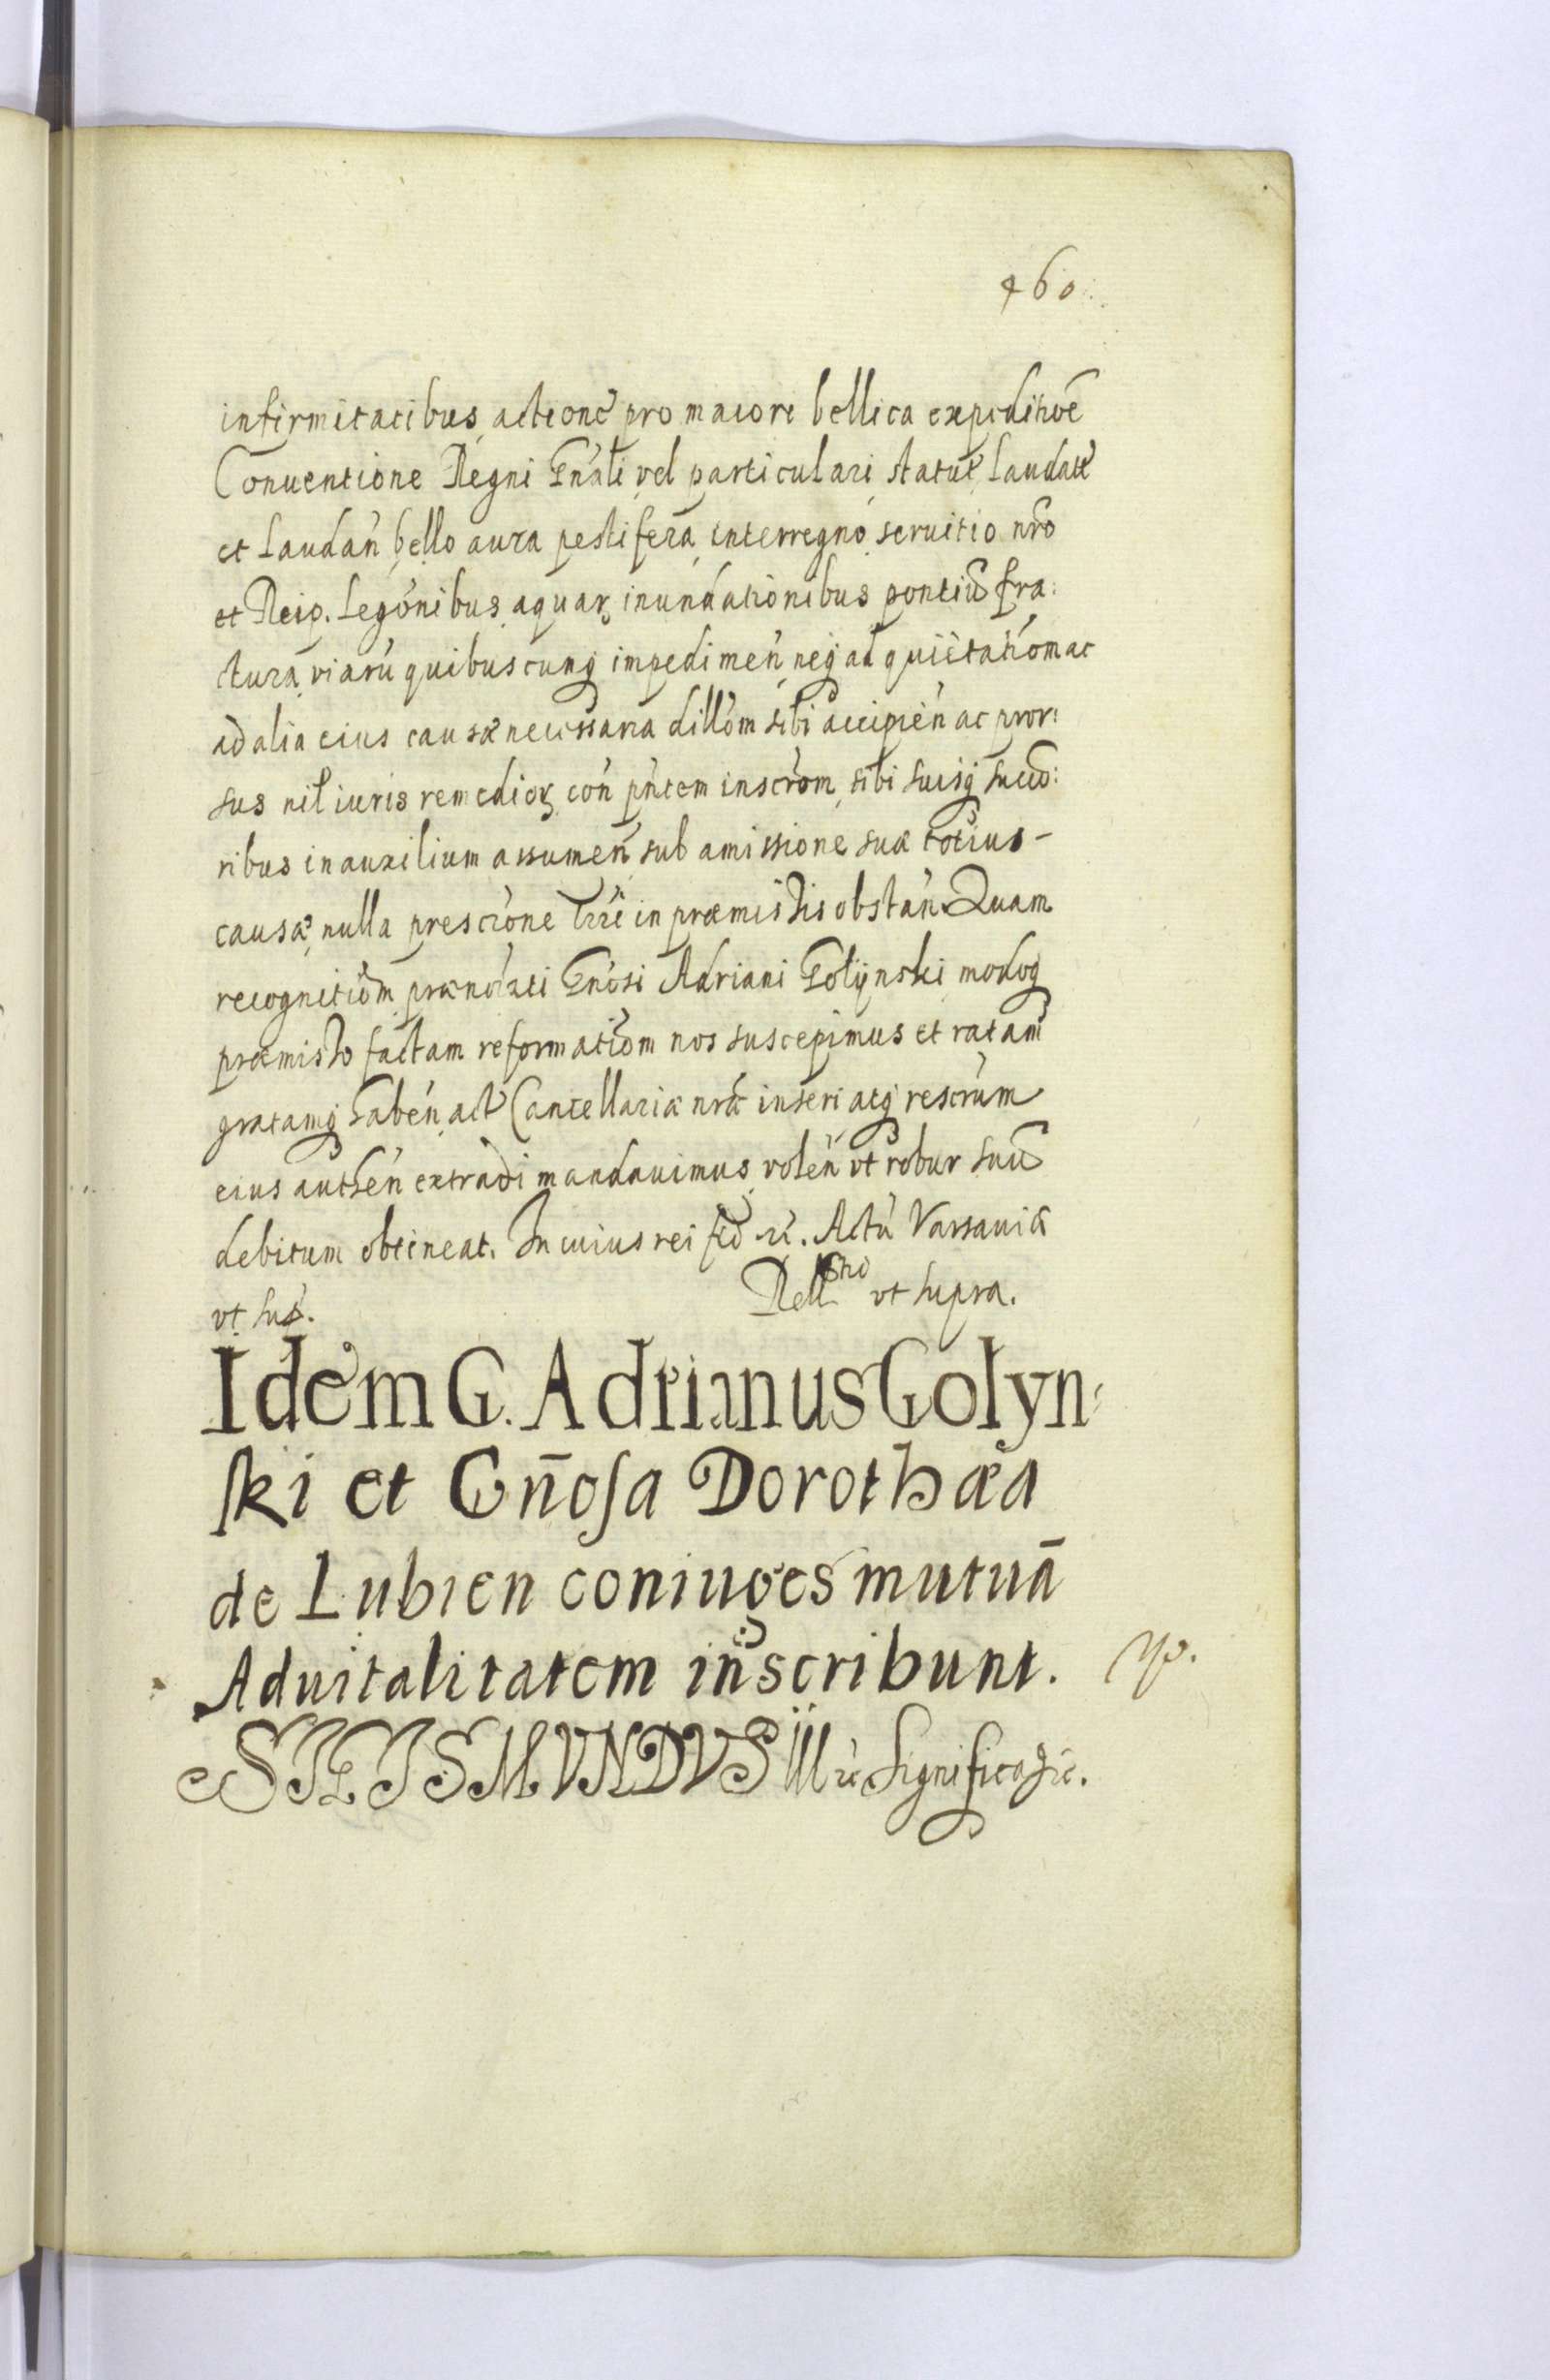 460
infirmitatibus, actione pro maiore bellica expeditioē
Conuentione Regni Gnāli vel particulari statūt, laudatē
et laudań, bello aura pestifera, interregno, seruitio nr̃o
et Reip. legōnibus, aquarꝝ inundationibus pontiū fra:
ctura, viarū quibuscunqꝫ impedimeń, neqꝫ ad quietatiōm ac
ad alia eius causæ necessaria dillōm sibi accipień ac pror:
sus nil iuris remediorꝝ coń pñtem inscrōm, sibi suisqꝫ succo:
ribus in auxilium assumeń sub amissione suæ totius
causæ, nulla prescrōne trrē in præmistis obstań. Quam
recognitiōm prænoīati Gnōsi Adriani Gołÿnski modoqꝫ
præmisto factam reformatiōm nos suscepimus et ratam
gratamqꝫ habeń, act̃ Cancellariæ nr̃æ inseri atqꝫ rescrūm
eius autheń extradi mandauimus, voleń vt robur suū
debitum obtineat. In cuius rei fid rc̃. Actū Varsauiæ
vt sup.
Rell vt supra.
Idem G. Adrianus Gołyn:
ski et Gn̄osa Dorothæa
de Lubien coniuges mutuā
Aduitalitatem inscribunt.
SIGISMVNDVS III rc̃ Significa rc̃.